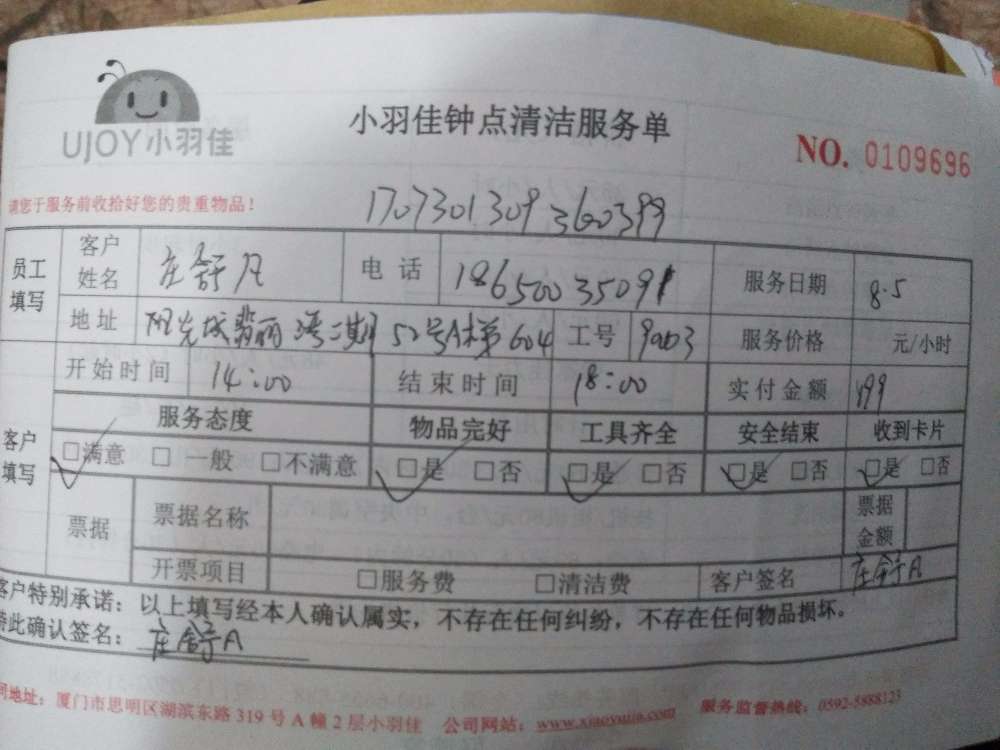 UJOY小羽佳
小羽佳钟点清洁服务单
NO. 0109696
请您于服务前收拾好您的贵重物品！
1707301309360399
员工填写 客户姓名 庄舒凡 电话 18650035091 服务日期 8.5
地址 阳光城翡丽湾二期 52号A梯604 工号 9003 服务价格 元/小时
开始时间 14:00 结束时间 18:00 实付金额 199
客户填写 服务态度 物品完好 工具齐全 安全结束 收到卡片
□满意 □一般 □不满意 □是 □否 □是 □否 □是 □否 □是 □否
票据 票据名称 票据金额
开票项目 □服务费 □清洁费 客户签名 庄舒凡
客户特别承诺：以上填写经本人确认属实，不存在任何纠纷，不存在任何物品损坏。
特此确认签名：庄舒凡
司地址：厦门市思明区湖滨东路319号A幢2层小羽佳 公司网站：www.xiaoyujia.com 服务监督热线：0592-5888123